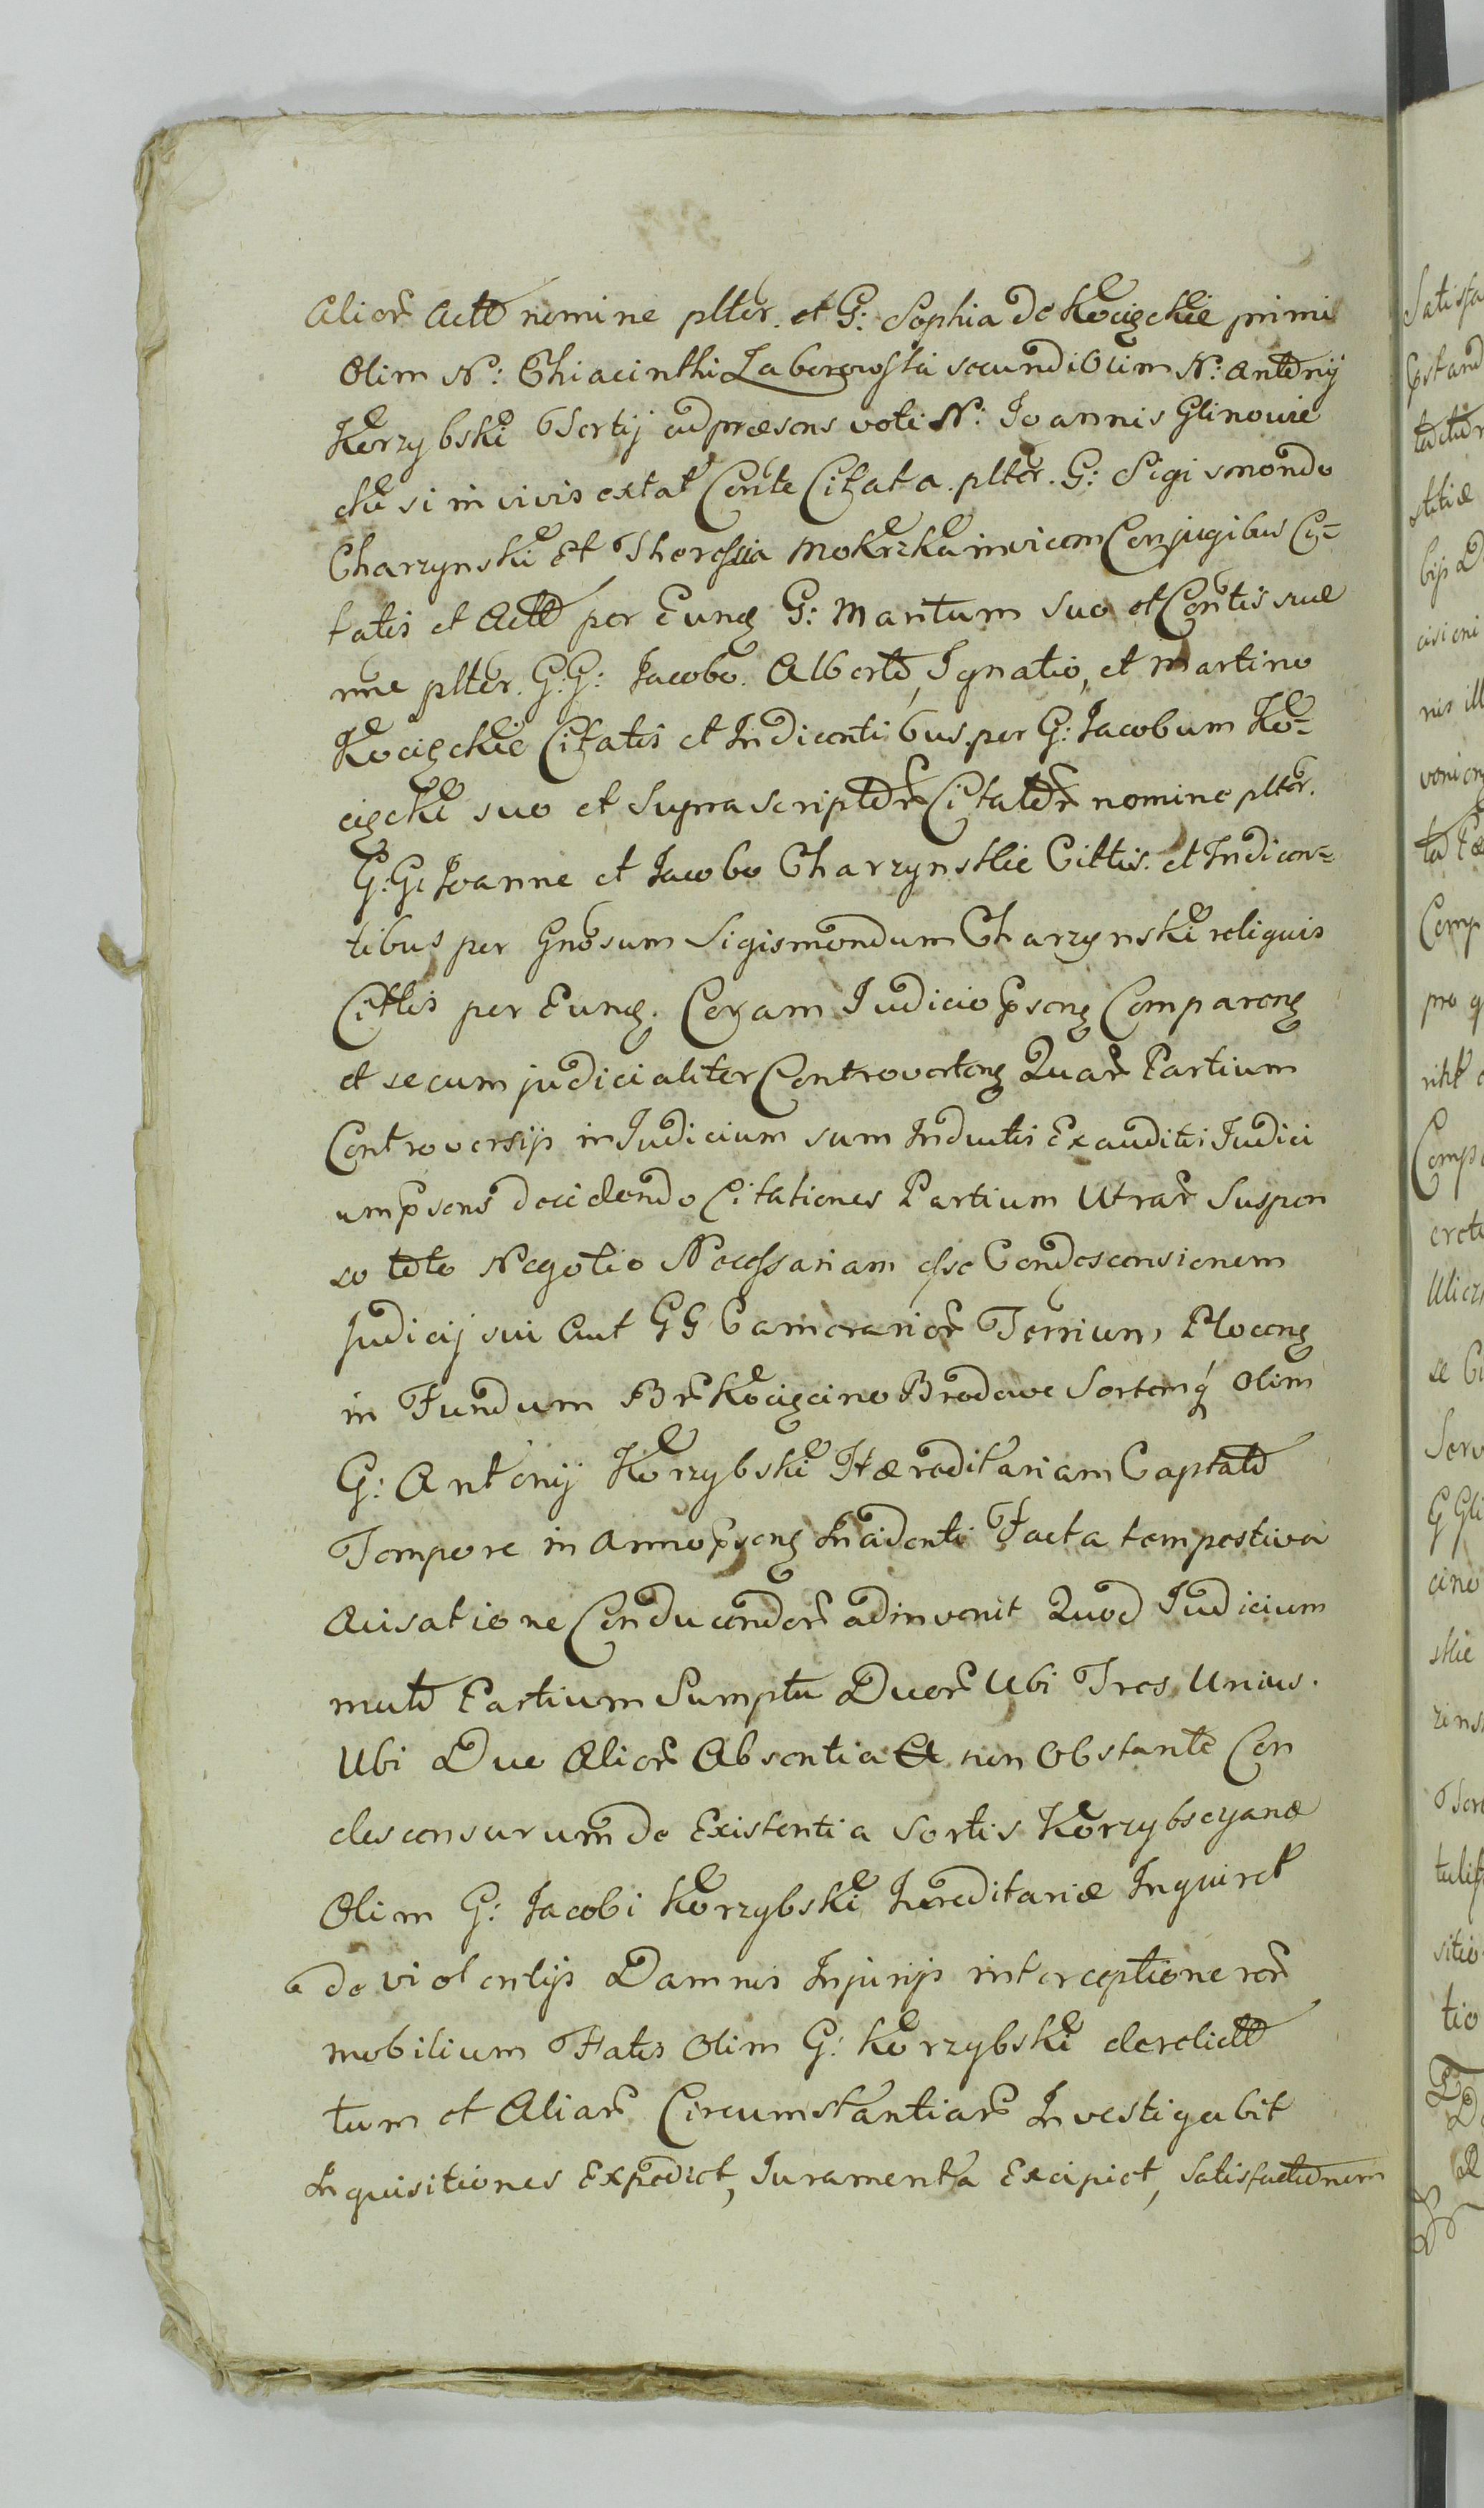 Alior Actt nomine plter. et G: Sophia de Kocięckie primi
Olim N: Chiacinthi Zaborowski secundi Olim N: Antonij
Korzybski Tertij ad præsens voti N: Joannis Glinowie
cki si in vivis extat Conte Citata. plter. G: Sigismondo
Charzynski Et Theressia Mokrzka invicem Conjugibus Ci=
tatis et Actt per Eund G: Maritum suo et Contis suæ
nne plter. G.G: Jacobo. Alberto, Ignatio, et Martino
Kocięckie Citatis et Indicentibus. per G: Jacobum Ko=
cięcki suo et supra scriptor Citator nomine plter.
G:G: Joanne et Jacobo Charzynskie Cittis. et Indicen=
tibus per Gnosum Sigismondum Charzynski reliquis
Cittis per Eund. Coram Judicio Psenq Comparenq
et secum judicialiter Controvertenq Quar Partium
Controversijs in Judicium suum Inductis Exauditis Judici
um Psens decidendo Citationes Partium Utrar Suspen
so toto Negotio Necessariam esse Condescensionem
Judicij sui Aut GG Camerarior Terrium, Plocenq
in Fundum Br Kocięcino Brodowe Sortemq Olim
G: Antonij Korzybski Hæreditariam Captato
Tempore in Anno Psenq Incidenti Facta tempestiva
Avisatione Conducendor adinvenit Quod Judicium
mutuo Partium Sumptu Duor Ubi Tres Unius.
Ubi Duo Alior Absentia non Obstante Con
descensurum de Existentia Sortis Korzybscyanæ
Olim G: Jacobi Korzybski hæreditariæ Inquiret
de violentijs Damnis Injurijs interceptione rer
mobilium Fatis Olim G: Korzybski derelictt
tum et Aliar Circumstantiar Investigabit
Inquisitiones Expediet, Juramenta Excipiet, Satisfactionem